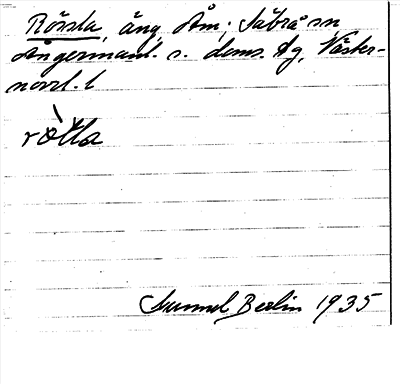 Rörsta, äng, Åm, Säbrå sn
Ångermanl. s. doms. Ag, Väster-
norrl. l
Gunnel Berlin 1935